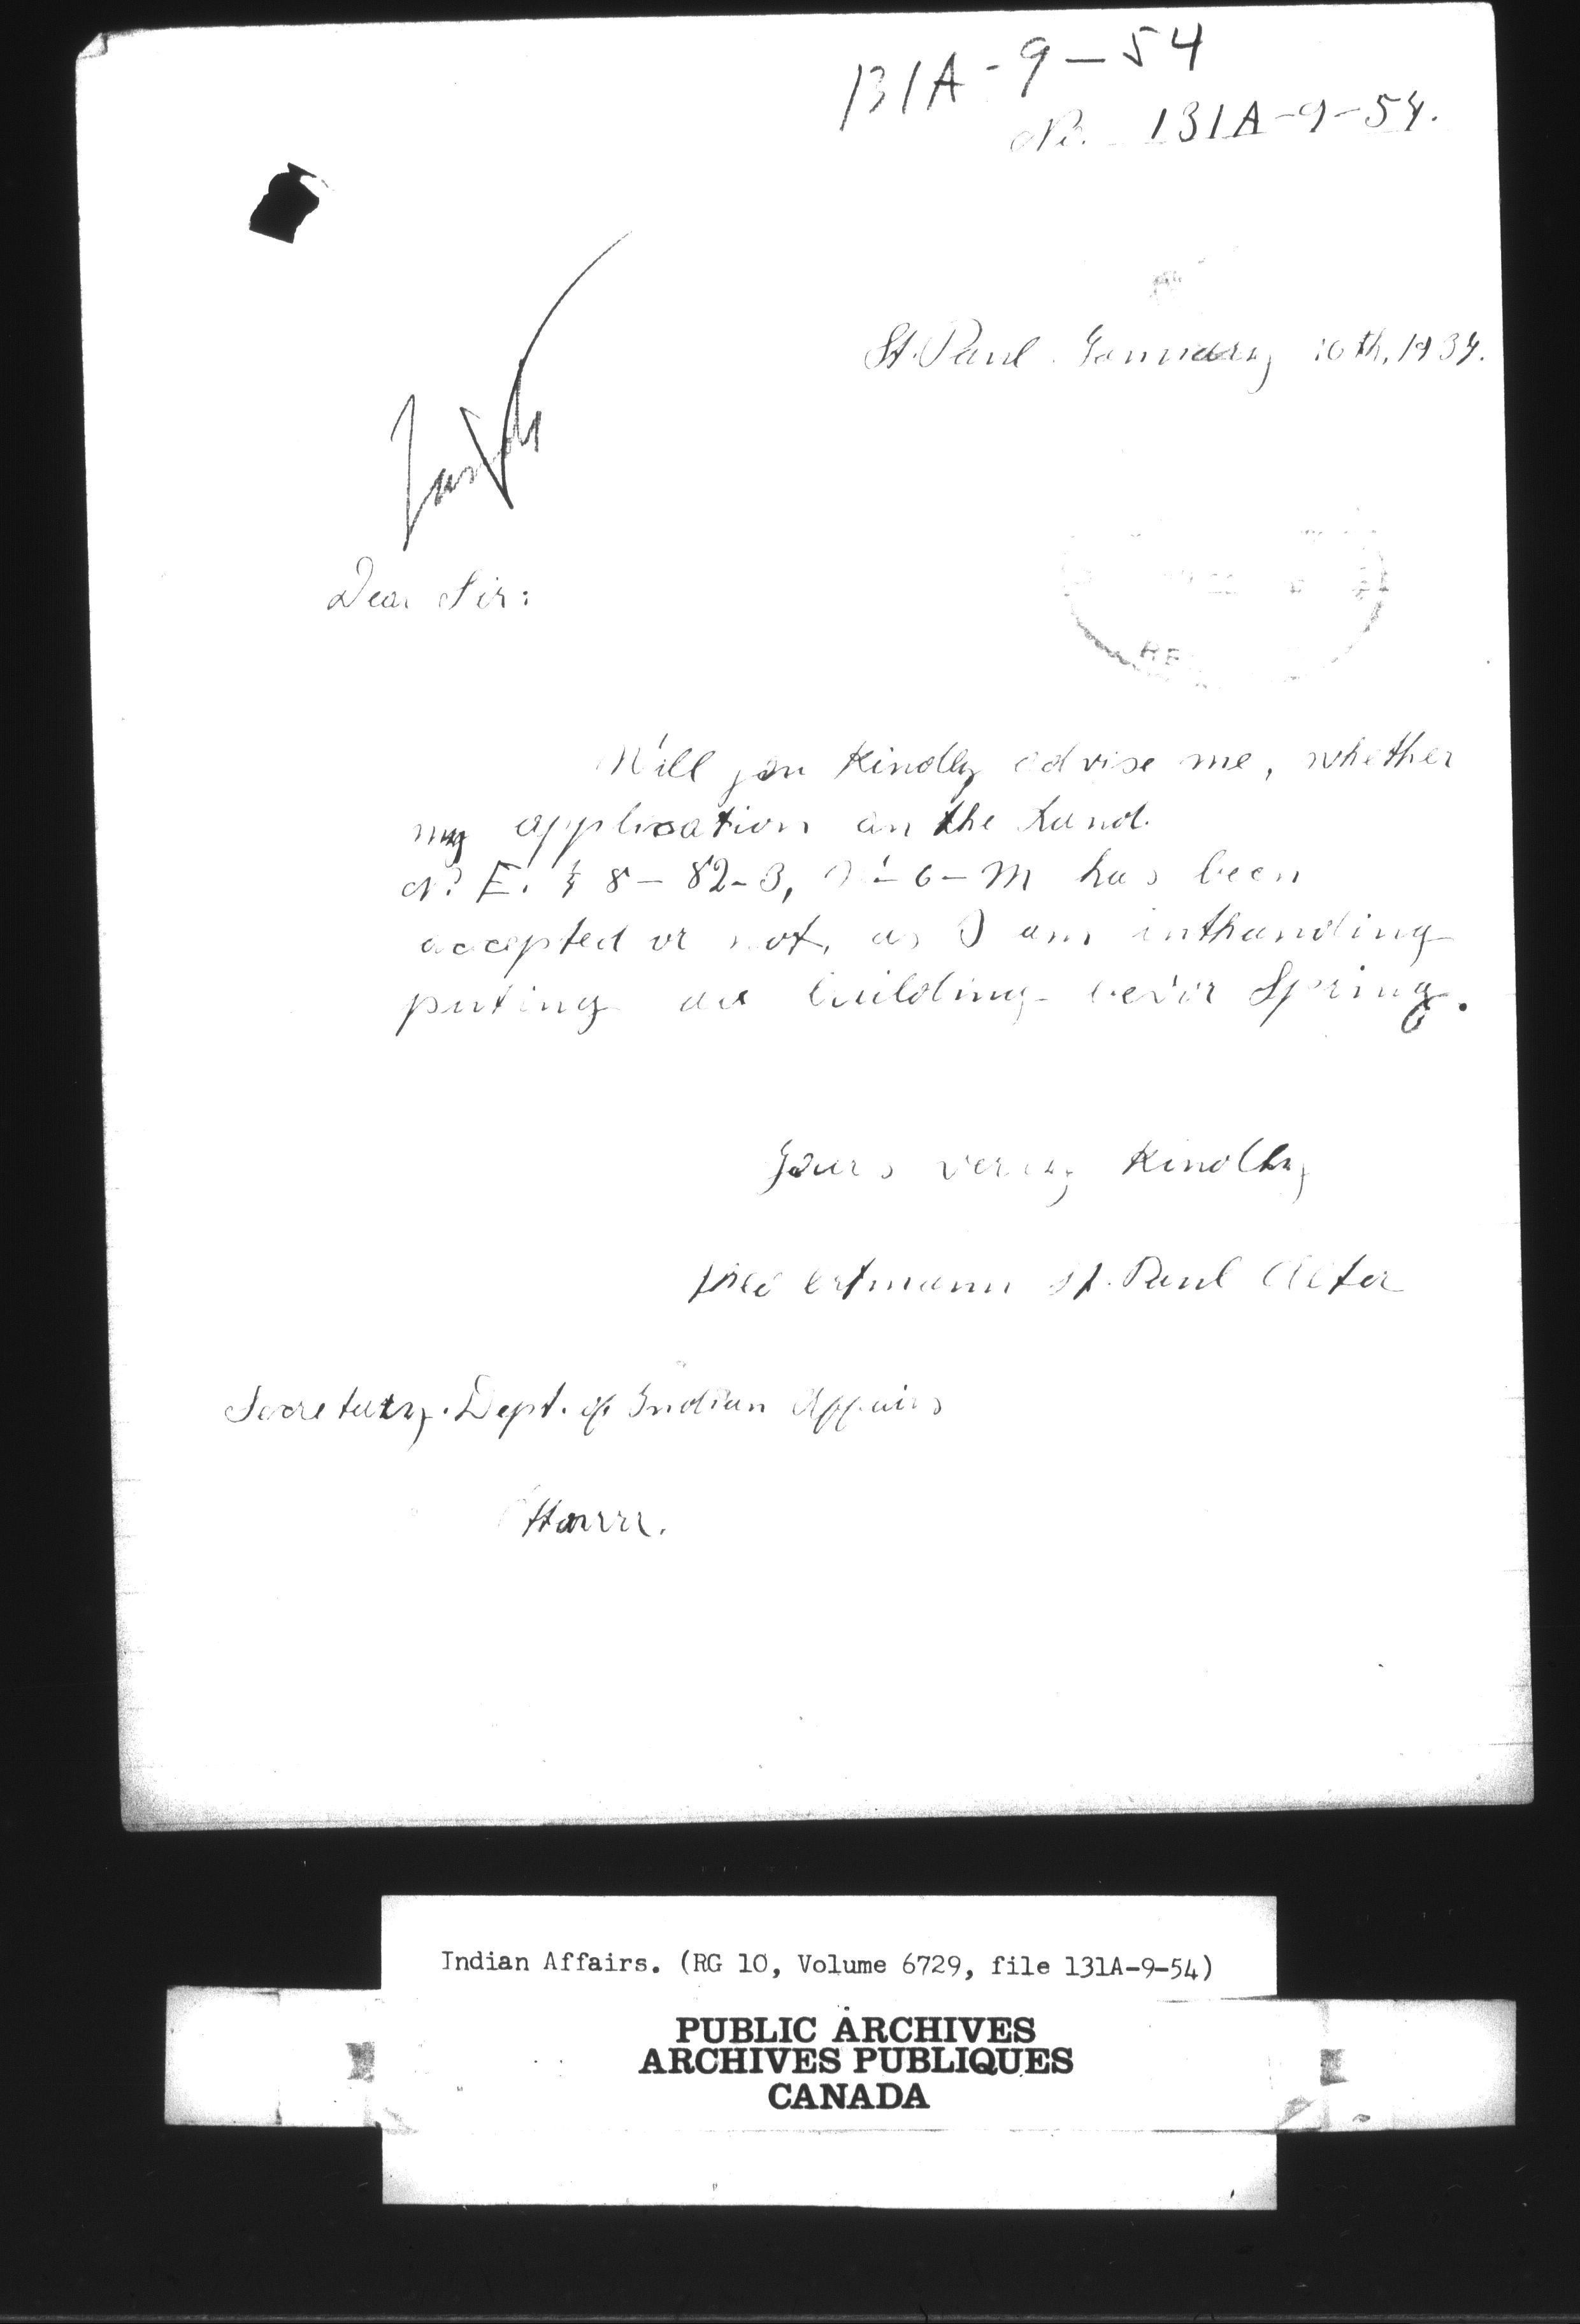 131A-9-54
No. 131A-9-54.
St. Paul. January 10th, 1934.
Dear Sir:
Will you Kindly advise me, whether
my application on the Land.
N? E. ¼ 8-82-3, 6-M has been
accepted or not, as I am inthanding
puting au building bevor Spring.
Yours very Kindly
Ertmann St. Paul Alta
Secretary. Dept. of Indian Affairs
Ottawa.
Indian Affairs. (RG 10, Volume 6729, file 131A-9-54)
PUBLIC ARCHIVES
ARCHIVES PUBLIQUES
CANADA